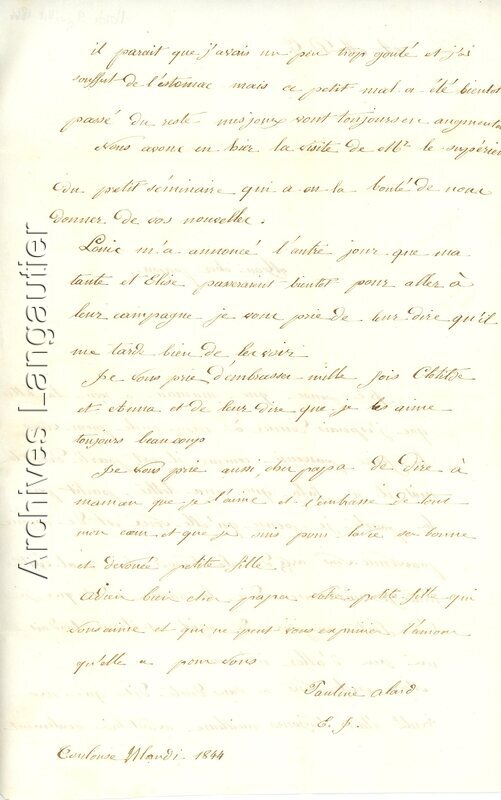 il parait que j'avais un peu trop gouté et j'ai
souffert de l'éstomac mais ce petit mal a été bientot
passé du reste mes joux vont toujours en augmenta
nous avons eu hier la visite de Mr le supérieu
du petit séminaire qui a eu la bonté de nous
donner de vos nouvelles.
m'a annoncé l'autre jour que ma
tante et Elise passeraient bientot pour aller à
leur campagne je vous prie de leur dire qu'il
me tarde bien de les voir
Je vous prie d'embrasser mille fois Clotilde
et Anna et de leur dire que je les aime
toujours beaucoup
Je vous prie aussi, cher papa de dire à
maman que je l'aime et l'embrasse de tout
mon cœur et que je suis pour la vie sa bonne
et dévouée petite fille
Adieu bien cher papa votre petite fille qui
vous aime et qui ne peut vous exprimer l'amour
qu'elle a pour vous
Pauline alard
E. J.
Toulouse Mardi. 1844
Archives Langautier